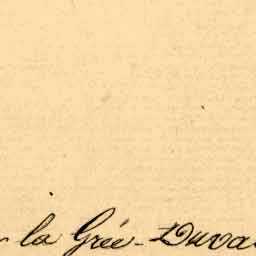 la Grée-Duva